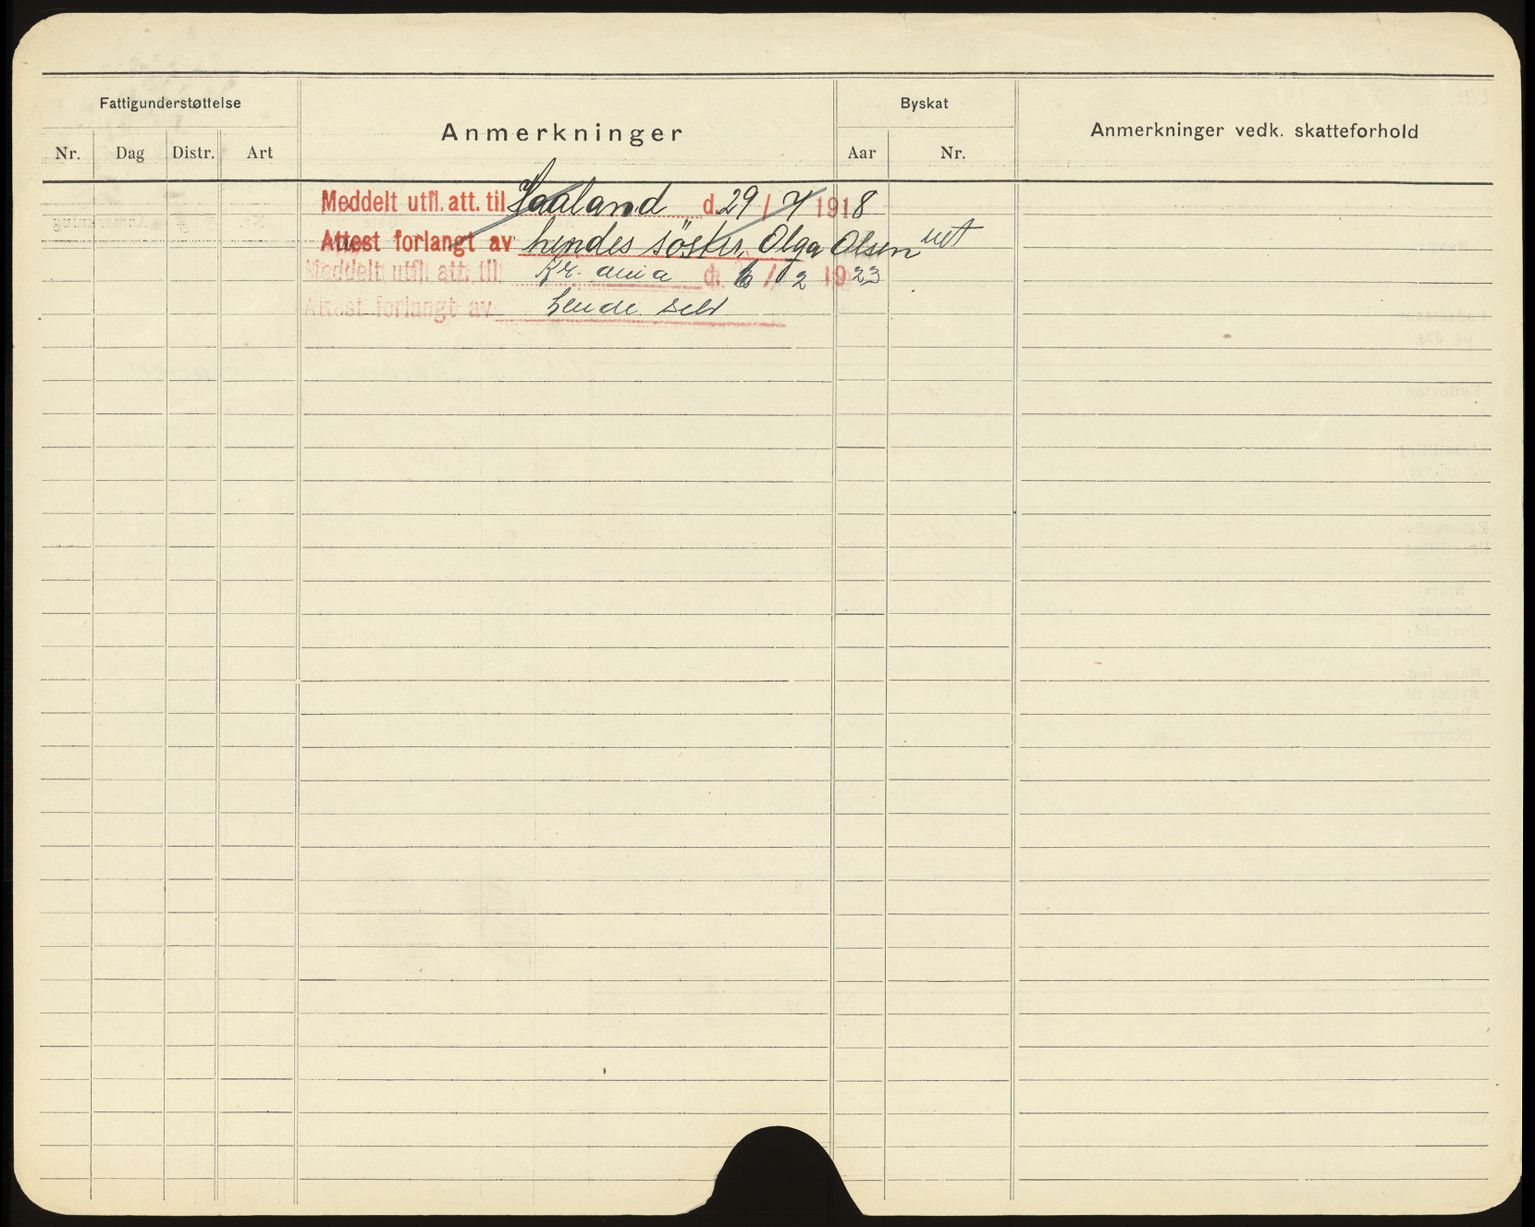 Fattigunderstøttelse
Nr. Dag Distr. Art
Anmerkninger
Byskat
Aar Nr.
Anmerkninger vedk. skatteforhold
Meddelt utfl. att. til Haaland d. 29 / 7 1918
Attest forlangt av hendes söster, Olga Olsen
Meddelt utfl. att. til Kr. ania d. 6 / 2 1923
Attest forlangt av hende selv